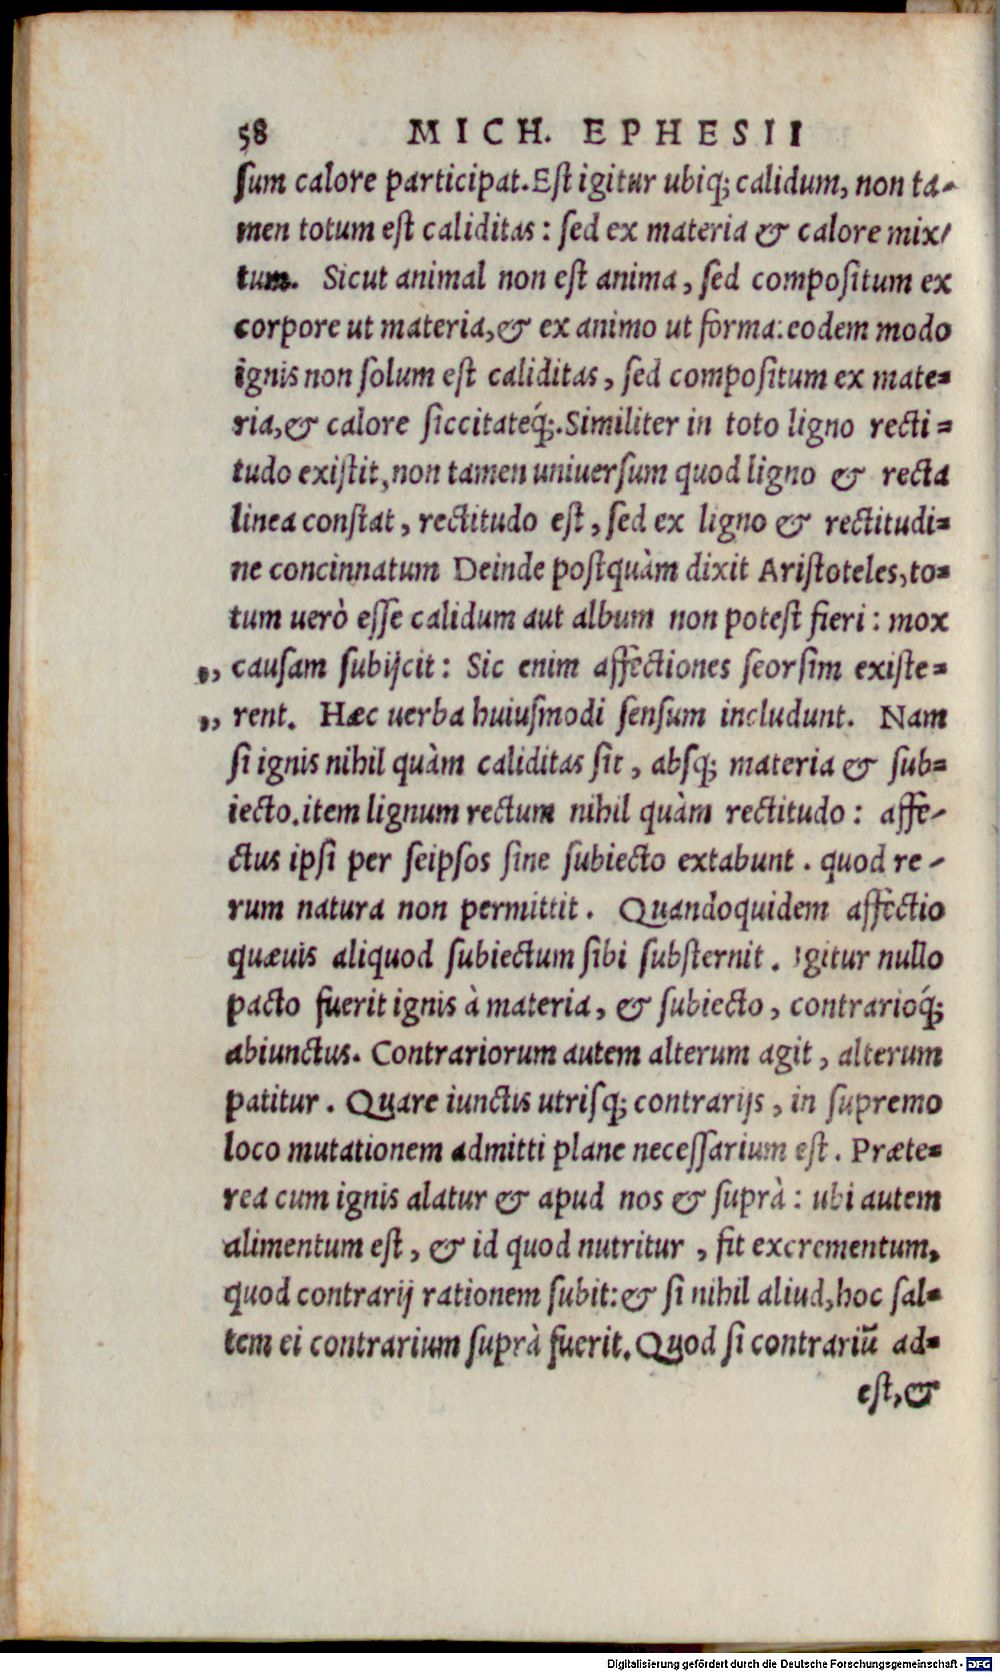 58 MICH. EPHESII
ſum calore participat. Eſt igitur ubiq; calidum, non ta-
men totum eſt caliditas : ſed ex materia & calore mix/
tum. Sicut animal non eſt anima, ſed compoſitum ex
corpore ut materia, & ex animo ut forma: eodem modo
ignis non ſolum eſt caliditas, ſed compoſitum ex mate=
ria, & calore ſiccitateq́;. Similiter in toto ligno recti =
tudo exiſtit, non tamen uniuerſum quod ligno & recta
linea conſtat, rectitudo eſt, ſed ex ligno & rectitudi=
ne concinnatum Deinde poſtquàm dixit Ariſtoteles, to=
tum uerò eſſe calidum aut album non poteſt fieri : mox
,, cauſam ſubijcit : Sic enim affectiones ſeorſim exiſte=
,, rent. Hæc uerba huiuſmodi ſenſum includunt. Nam
ſi ignis nihil quàm caliditas ſit, abſq; materia & ſub=
iecto. item lignum rectum nihil quàm rectitudo : affe-
ctus ipſi per ſeipſos ſine ſubiecto extabunt . quod re -
rum natura non permittit . Quandoquidem affectio
quæuis aliquod ſubiectum ſibi ſubſternit . Igitur nullo
pacto fuerit ignis à materia, & ſubiecto, contrarioq́;
abiunctus. Contrariorum autem alterum agit, alterum
patitur . Quare iunctis utriſq; contrarijs, in ſupremo
loco mutationem admitti plane neceſſarium eſt. Præte=
rea cum ignis alatur & apud nos & ſuprà : ubi autem
alimentum eſt, & id quod nutritur , fit excrementum,
quod contrarij rationem ſubit: & ſi nihil aliud, hoc ſal=
tem ei contrarium ſuprà fuerit. Quod ſi contrariū ad=
eſt, &
Digitalisierung gefördert durch die Deutsche Forschungsgemeinschaft - DFG